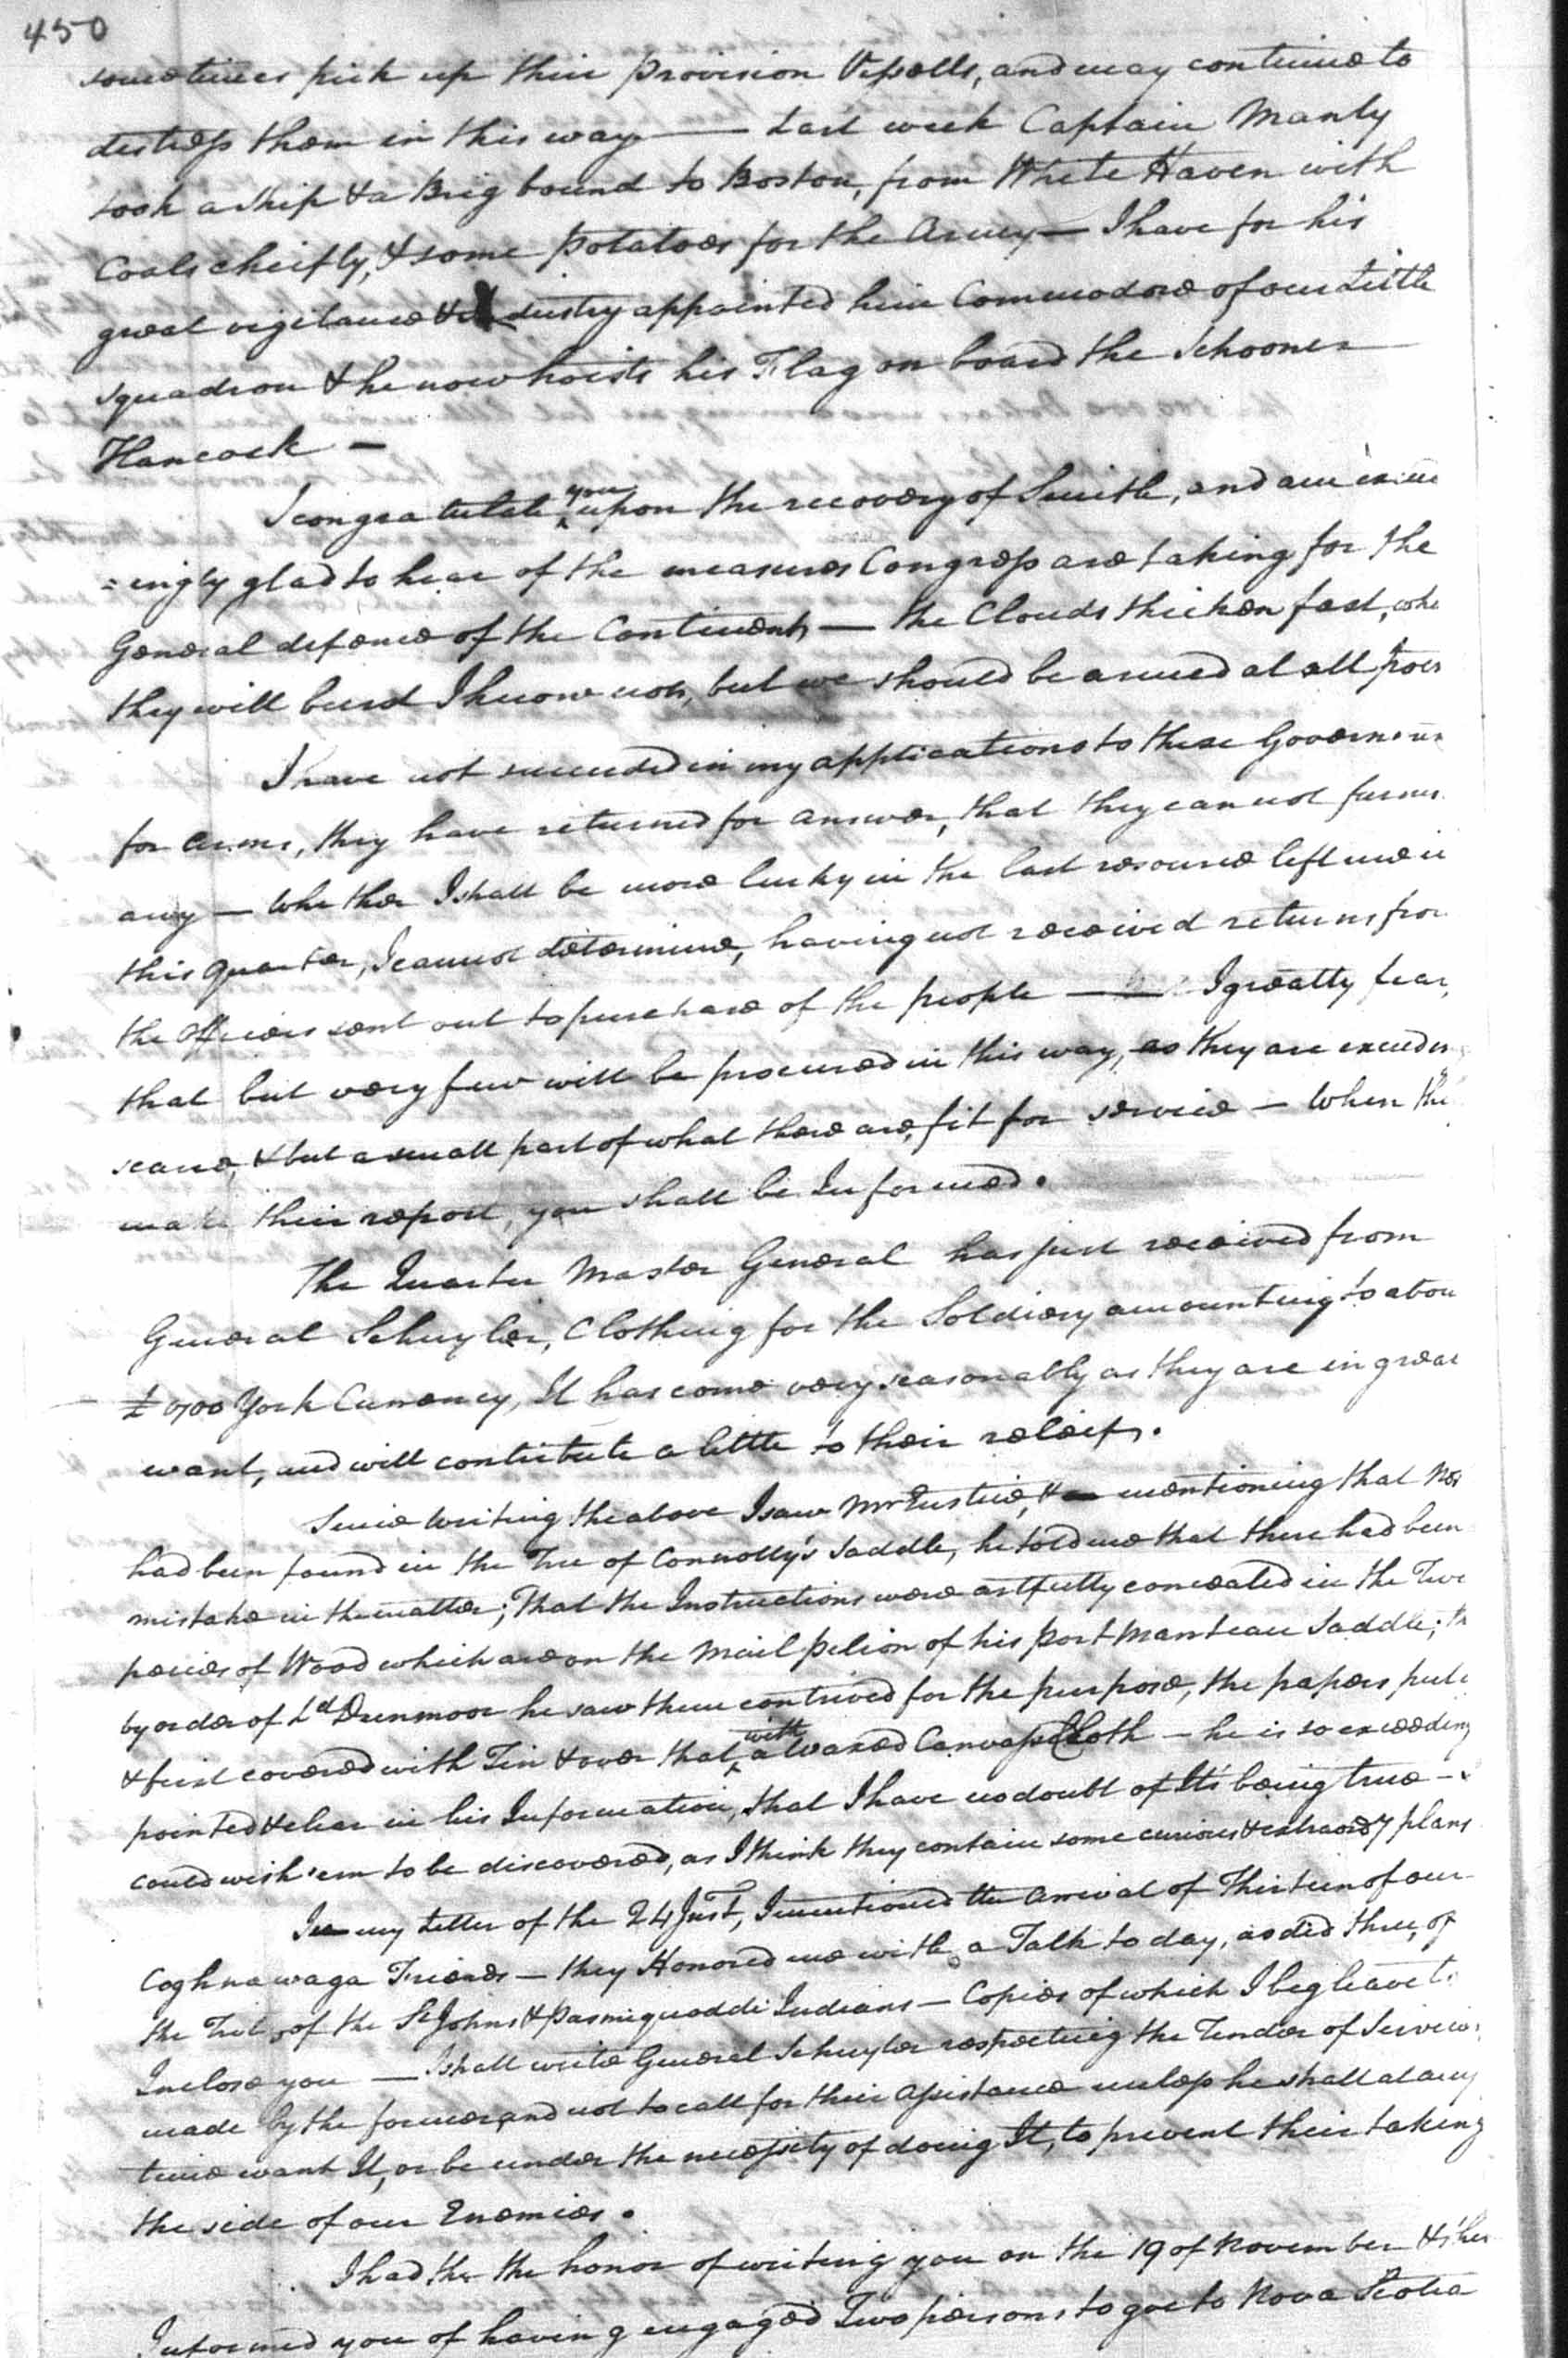 450
sometimes pick up their provision Vessells, and may continue to
distress them in this way — Last week Captain Manly
took a Ship & a Brig bound to Boston, from White Haven with
Coals cheifly, & some potatoes for the Army — I have for his
great vigilance & industry appointed him Commodore of our Little
squadron & he now hoists his Flag on board the Schooner
Hancock —
I congratulate you upon the recovery of Smith, and am exceed
=ingly glad to hear of the measures Congress are taking for the
General defence of the Continent, — the Clouds thicken fast, whe
they will burst I know not, but we should be armed at all poin
I have not succeeded in my applications to these Governmen
for Arms, they have returned for answer, that they can not furnis
any — Whether I shall be more lucky in the last resource left me in
this Quarter, I cannot determine, having not received returns from
the officers sent out to purchase of the people — I greatly fear,
that but very few will be procured in this way, as they are exceeding
scarce, & but a small part of what there are, fit for service — When they
make their report, you shall be Informed.
The Quarter Master General has just received from
General Schuyler, Clothing for the Soldiery amounting to abou
York Currency, It has come very seasonably as they are in great
want, and will contribute a little to their releif.
Since writing the above I saw Mr Eustice, & mentioning that No
had been found in the Tree of Connolly's Saddle, he told me that there had been
mistake in the matter; That the Instructions were artfully concealed in the Two
peices of Wood which are on the Mail pelion of his Port Manteau Saddle; th
by order of Ld Dunmoor he saw them contrived for the purpose, the papers put i
& first covered with Tin & over that, with a Waxed Canvass Cloth — he is so exceeding
pointed & clear in his Information, that I have no doubt of It's being true —
could wish 'em to be discovered, as I think they contain some curious & extraordy plans
In my Letter of the 24 Inst, I mentioned the arrival of Thirteen of our
Coghnawaga Friends — they Honored me with a Talk to day, as did three, of
the Tribes of the St Johns & Pasmiquoddi Indians — Copies of which I beg leave to
Inclose you — I shall write General Schuyler respecting the Tender of Service
made by the former, and not to call for their Assistance unless he shall at any
time want It, or be under the necessity of doing It, to prevent their taking
the side of our Enemies.
I had the the honor of writing you on the 19 of November & then
Informed you of having engaged Two persons to goe to Nova Scotia